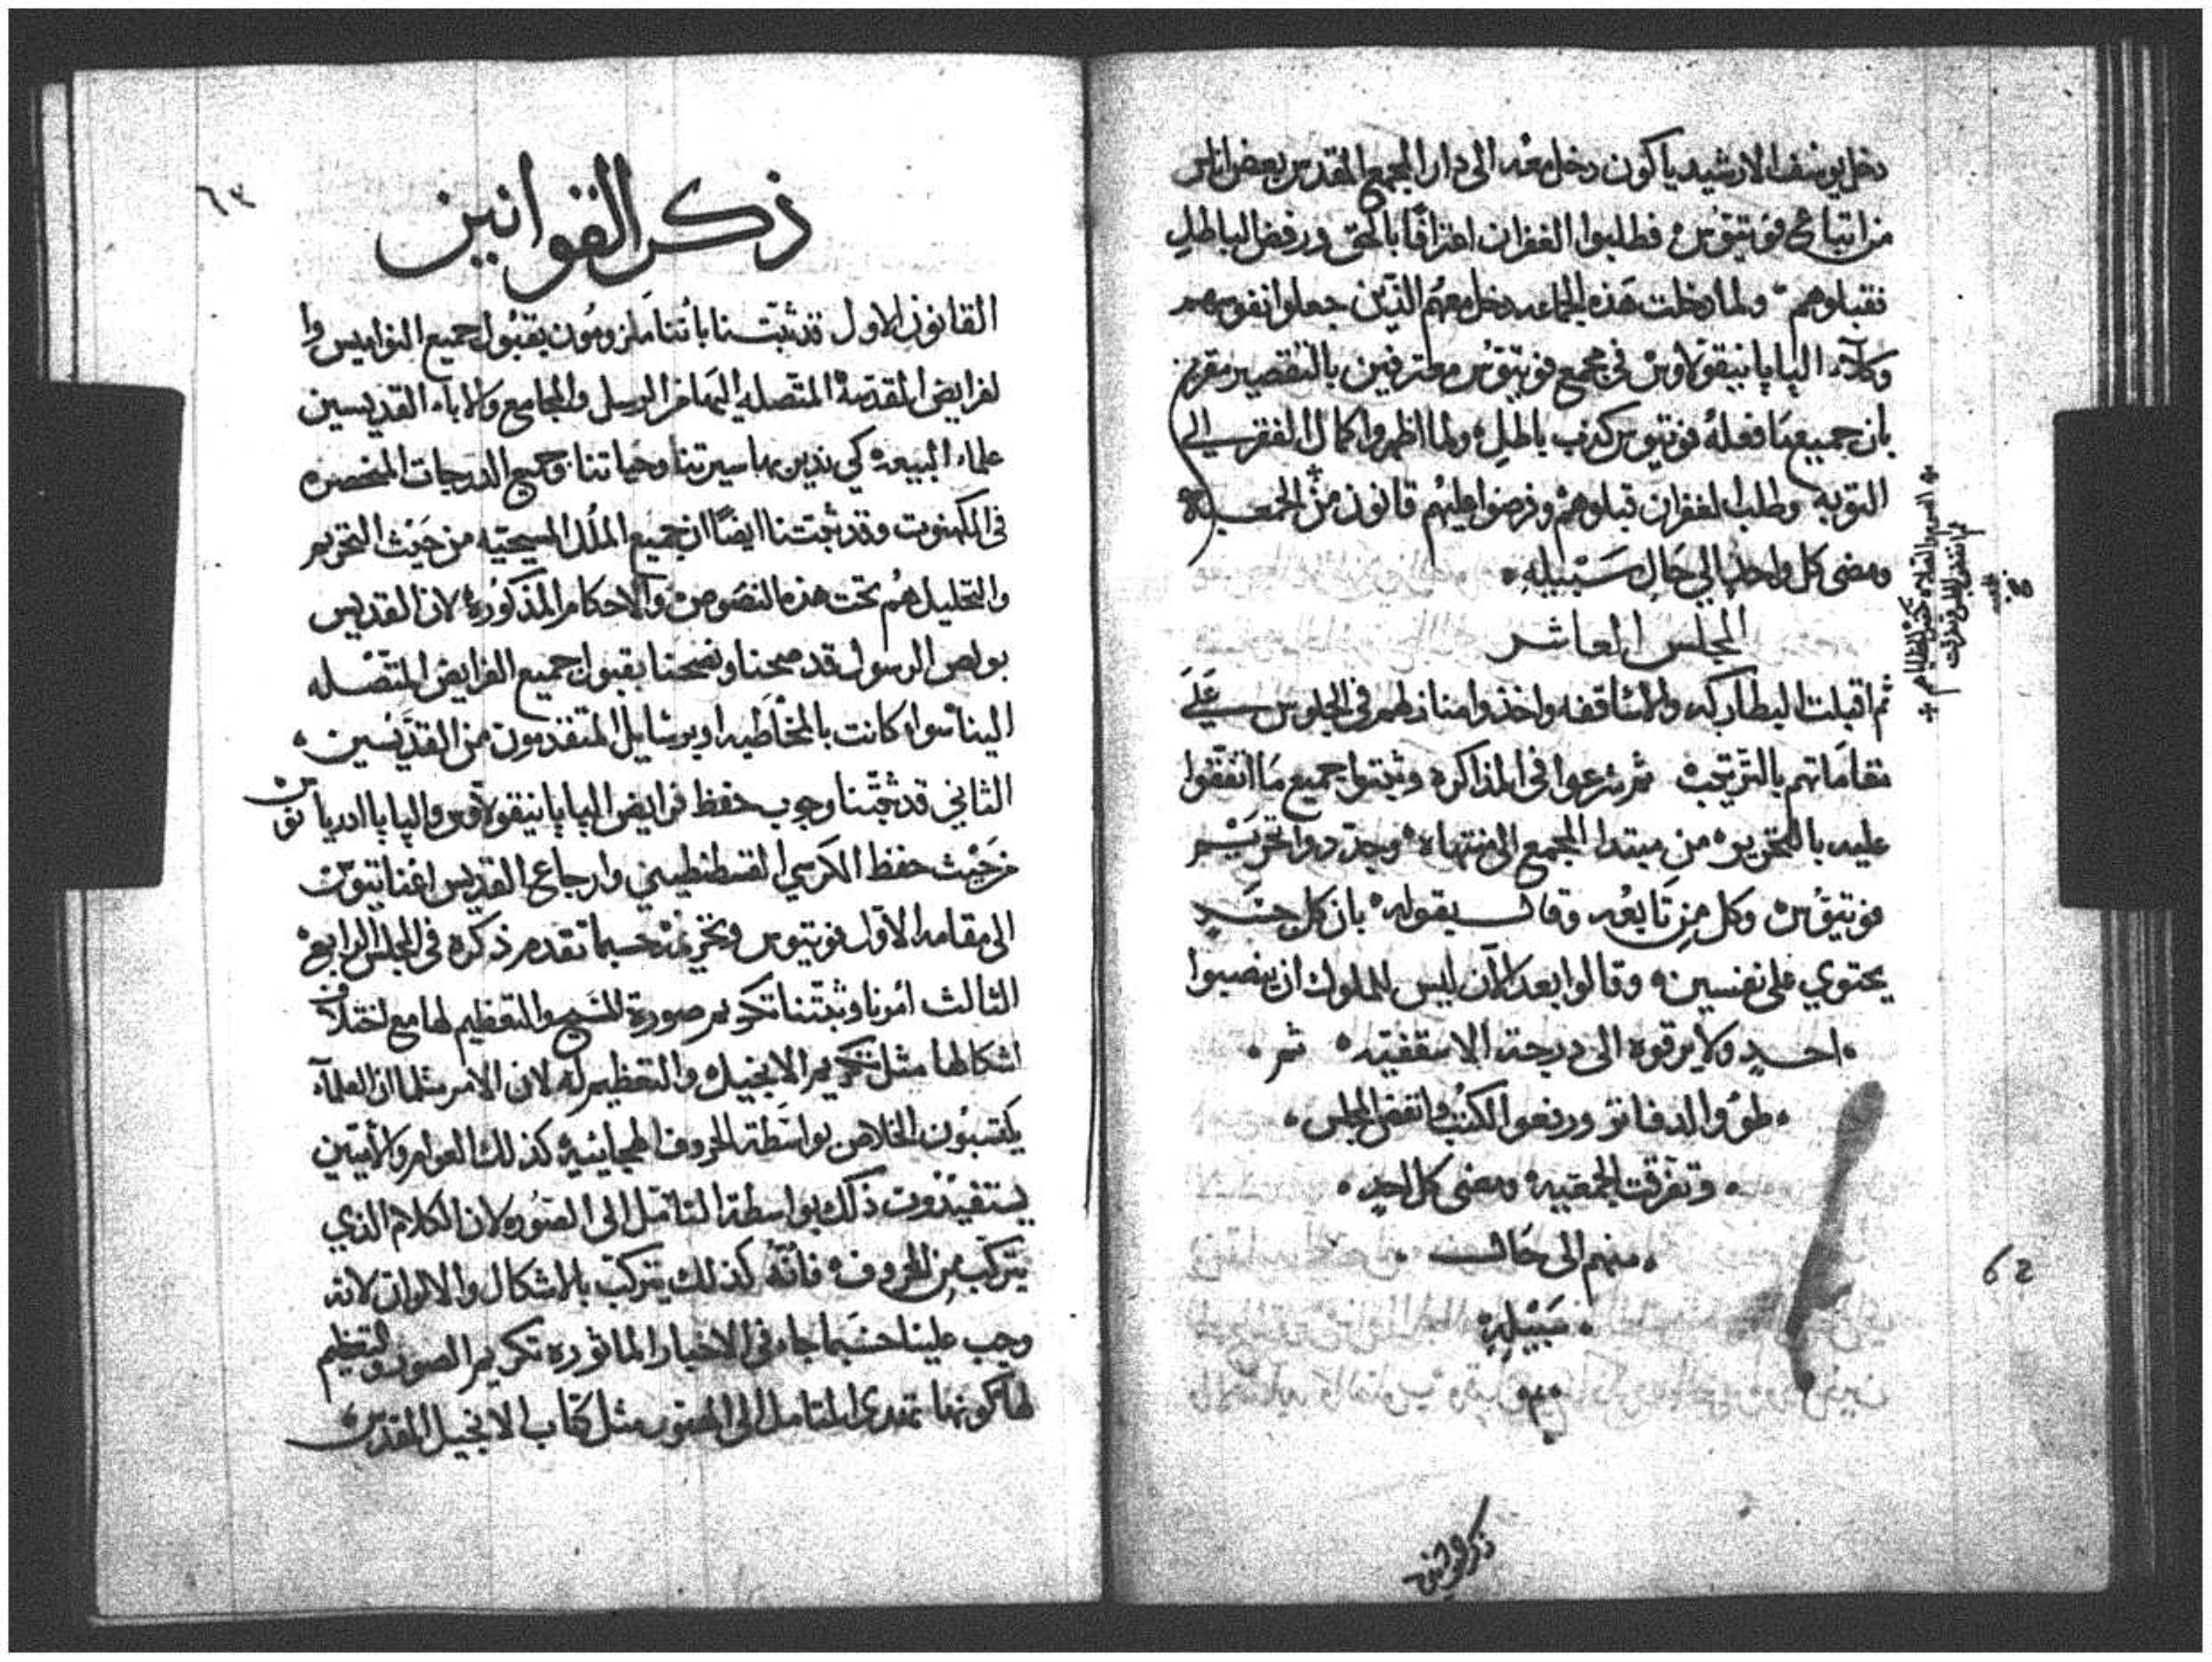 دخل يوسف الارشيدياكون دخل معه الى دار المجمع المقدس بعض اناس
من اتباع فوتيوس فطلبوا الغفران اعترافًا بالحق ورفض الباطل
فقبلوهم ولما دخلت هذه الجماعه دخل معهم الذين جعلوا انفوسهم
وكلآء البابا نيقولاوس في مجمع فوتيوس معترفين بالتقصير مقرين
بان جميع ما فعلهُ فوتيوس كذب باطل ولما اظهروا كمال الفقر الي
التوبه وطلب الغفران قبلوهم وفرضوا عليهم قانون من الجمعيه
ومضى كل واحد الي حال سبيله
المجلس العاشر
ثم اقبلت البطاركه والاساقفه واخذوا منازلهم في الجلوس علي
مقاماتهم بالترتيب ثم شرعوا في المذاكره وثبتوا جميع ما اتفقوا
عليه بالتحرير من مبتدا المجمع الى منتهاه وجددوا تحريم
فوتيوس وكل من تابعه وقال بقوله بان كل جسد
يحتوي على نفسين وقالوا بعد الآن ليس للملوك ان ينصبوا
احد ولا يرقوه الى درجة الاسقفيه ثم
طووا الدفاتر ورفعوا الكتب وانفض المجلس
وتفرقت الجمعيه ومضى كل احد
منهم الى حال
سبيله
62
ذكر القوانين
٦٣
ذكر القوانين
القانون الاول قد ثبت بنا باننا ملزومون بقبول جميع النواميس وا
لفرايض المقدسه المتصله الينا من الرسل والمجامع والاباء القديسين
علماء البيعه كي ندبر بها سيرتنا وحياتنا وجميع الدرجات المنحصره
في الكهنوت وقد ثبتنا ايضًا ان جميع الملل المسيحيه من حيث التحريم
والتحليل هم تحت هذه النصوص والاحكام المذكوره لان القديس
بولص الرسول قد نصحنا بقبول جميع الفرايض المتصله
الينا سواء كانت بالمخاطبه او برسايل المتقدمون من القديسين
الثاني قد ثبتنا وجوب حفظ فرايض البابا نيقولاوس والبابا ادريانوس
من حيث حفظ الكرسي القسطنطيني وارجاع القديس اغناتيوس
الى مقامه الاول فوتيوس وتحريمه حسبما تقدم ذكره في المجلس الرابع
الثالث امرنا وثبتنا تكريم صورة المسيح والتعظيم لها مع اختلاف
اشكالها مثل تكريم الانجيل والتعظيم له لان الامر مثلما ان العلمآء
يكتسبون الخلاص بواسطة الحروف الهجائيه كذلك العوام والاميين
يستفيدون ذلك بواسطة التامل الى الصوره لان الكلام الذي
يتركب من الحروف فانه كذلك يتركب بالاشكال والالوان لانه
وجب علينا حسبما جاء في الاخبار الماثوره تكريم الصور والتعظيم
لها كونها تهدي المتامل الى المصور مثل كتاب الانجيل المقدس